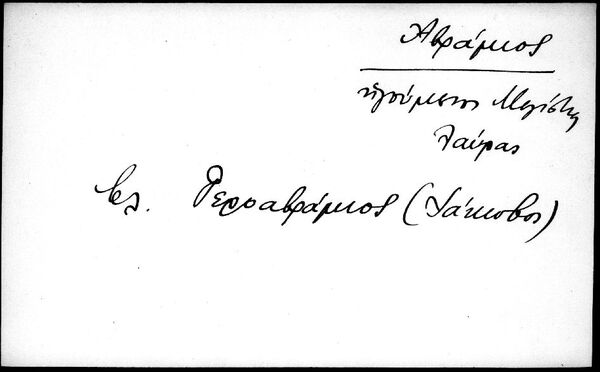 Ἀβράμιος
ἡγούμενος Μεγίστης
Λαύρας
βλ. Γεροαβράμιος (Ἰάκωβος)